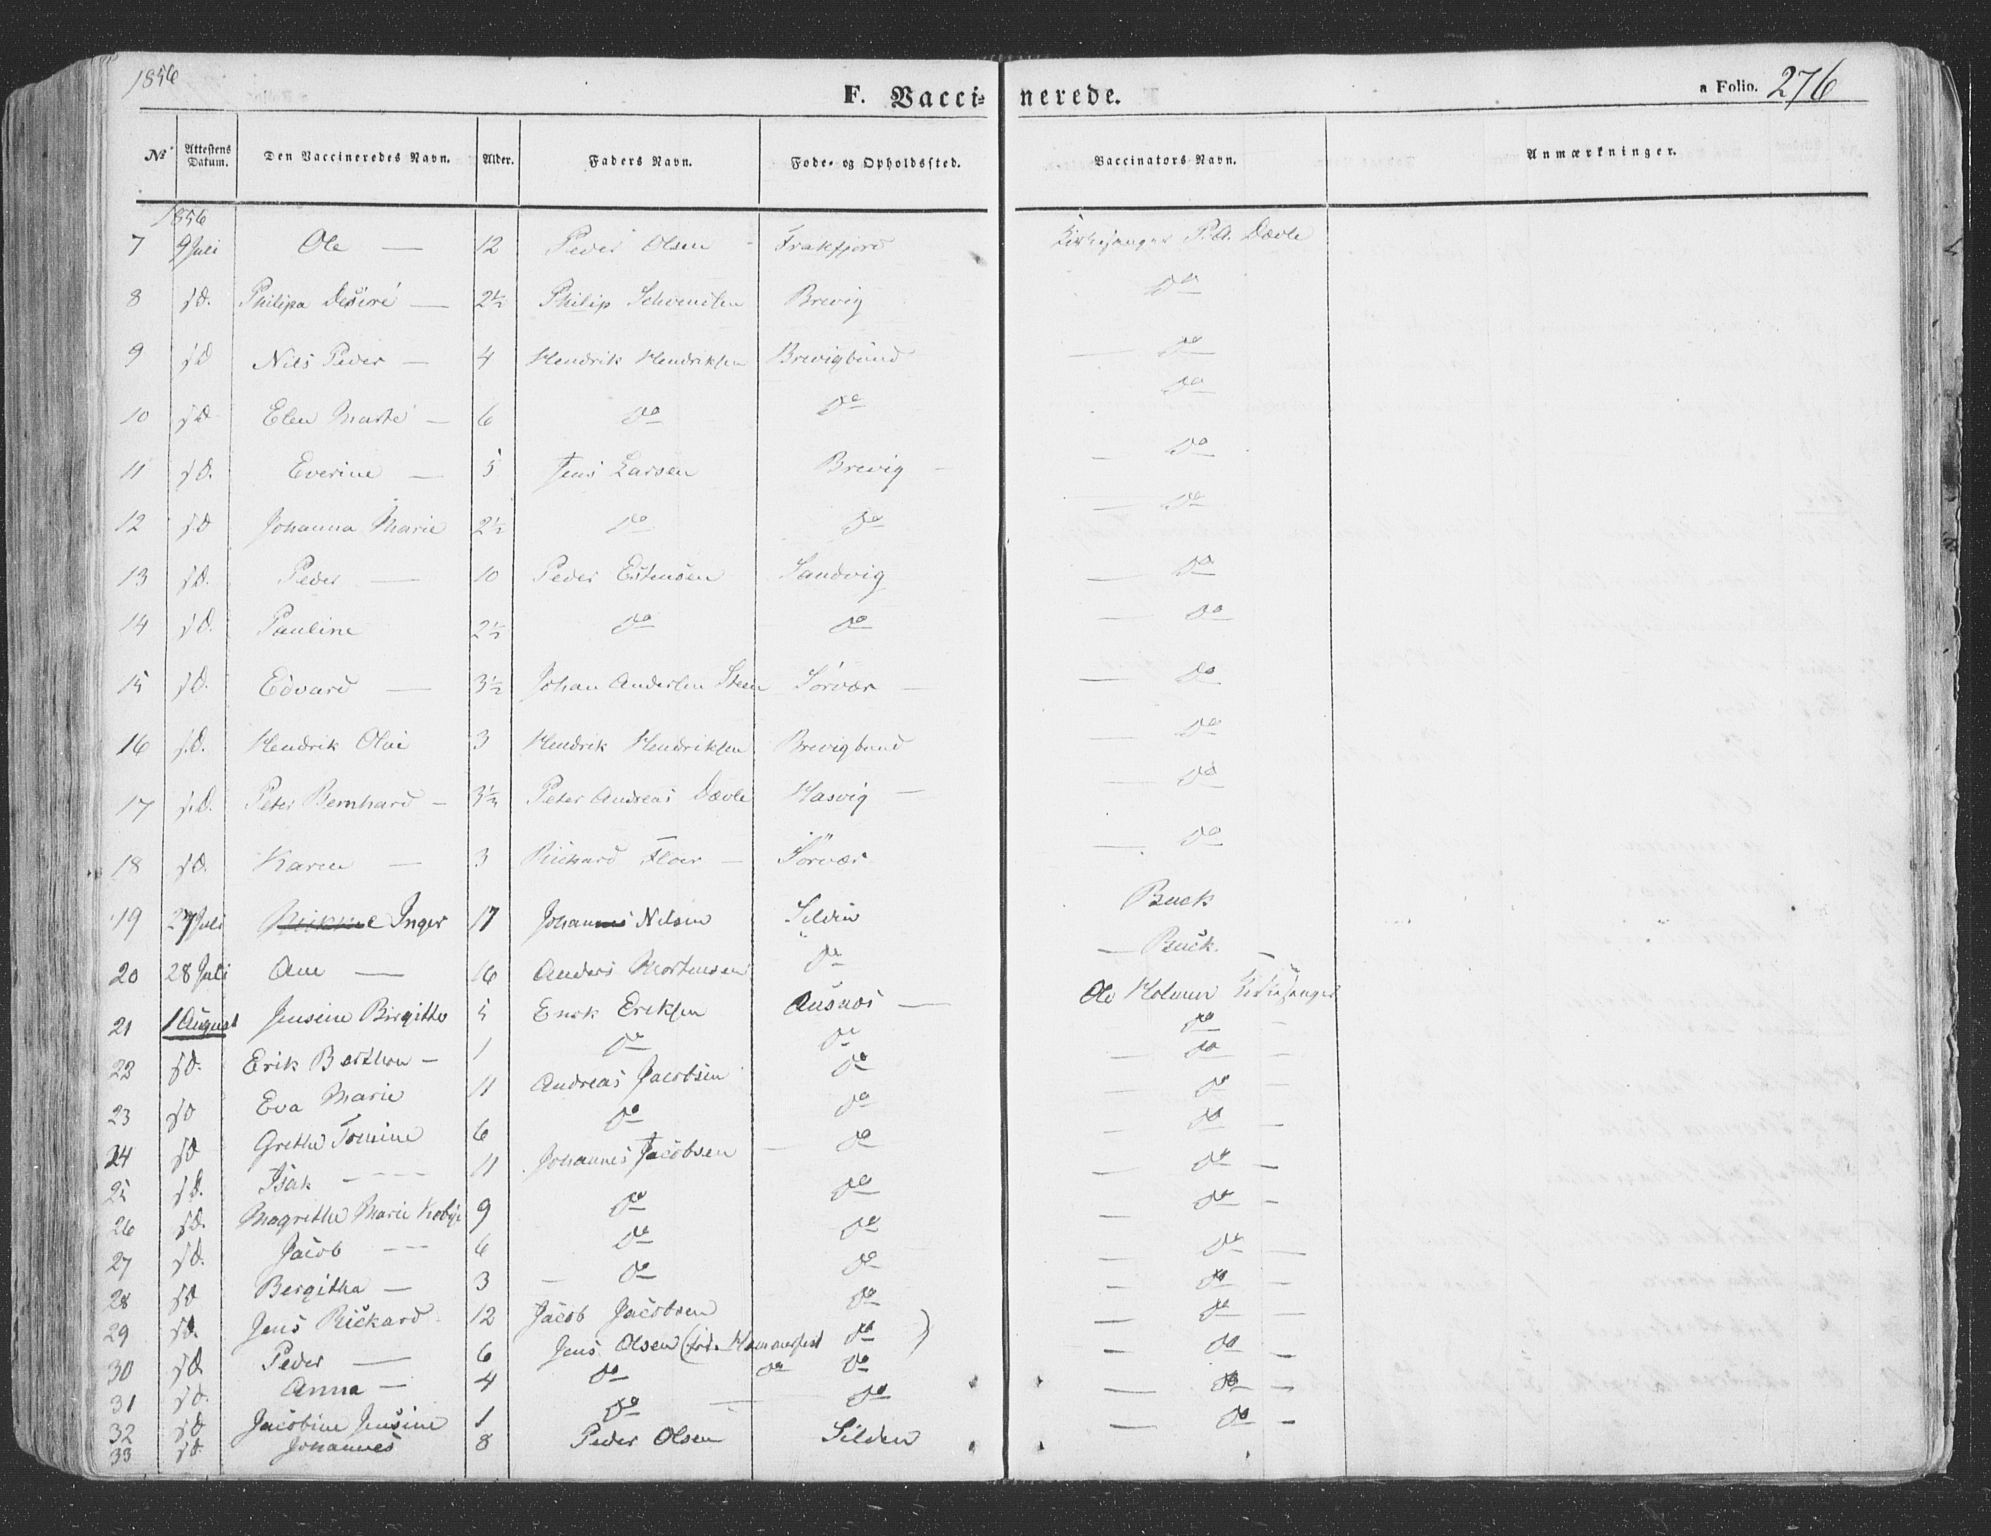 1856
F. Vacci- nerede.
a Folio. 276
No Attestens Datum. Den Vaccineredes Navn. Alder. Faders Navn. Føde- og Opholdssted. Vaccinators Navn. Anmærkninger.
1856
7 9 Juli Ole — 12 Peder Olsen - Kirkesanger P. A. Dævle
8 s.D. Philipa Desiré — 2½ Philip Brevig Do
9 s.D Nils Peder — 4 Hendrik Hendriksen Brevigbund — Do
10 s.D Elen Marte — 6 Do Do Do
11 s.D. Everine — 5 Jens Larsen Brevig — — Do
12 s.D Johanna Marie 2½ Do Do — Do
13 s.D. Peder — 10 Peder Estensen Sandvig — Do
14 s.D. Pauline 2½ Do Do — Do
15 s.D. Edvard — 3½ Johan Andersen Steen Sørvær — — Do
16 s.D. Hendrik Olai 3 Hendrik Hendriksen Brevigbund — Do
17 s.D. Peter Bernhard — 3½ Peter Andreas Dævle Hasvig — — Do
18 s.D. Karen — 3 Richard Floer — Sørvær — Do
19 27 Juli Inger 17 Johannes Nilsen Silden Buck
20 28 Juli Ane — 16 Anders Mortensen Do — Buck. —
21 1 August Jensine Birgitte 5 Erik Eriksen Ausnæs — Ole Holmer Kirkesanger
22 s.D. Erik Berthon — 1 Do Do Do —
23 s.D Eva Marie 11 Andreas Jacobsen Do — Do —
24 s.D Grethe Tomine 6 Do Do — Do —
25 s.D. Isak - - - 11 Johannes Jacobsen — Do — Do —
26 s.D. Magrethe Marie 9 Do Do — Do —
27 s.D. Jacob - - - 6 Do Do — Do —
28 s.D Bergitha — 3 — Do Do — Do —
29 s.D. Jens Rickard 12 Jacob Jacobsen Do — Do —
30 s.D. Peder — 6 Jens Olsen Hammerfest Do ) — Do —
31 s.D. Anna — 4 Do Do Do — Do —
32 s.D Jacobine Jensine 1 Do — Do — Do —
33 s.D. Johannes 8 Peder Olsen Silden — Do —